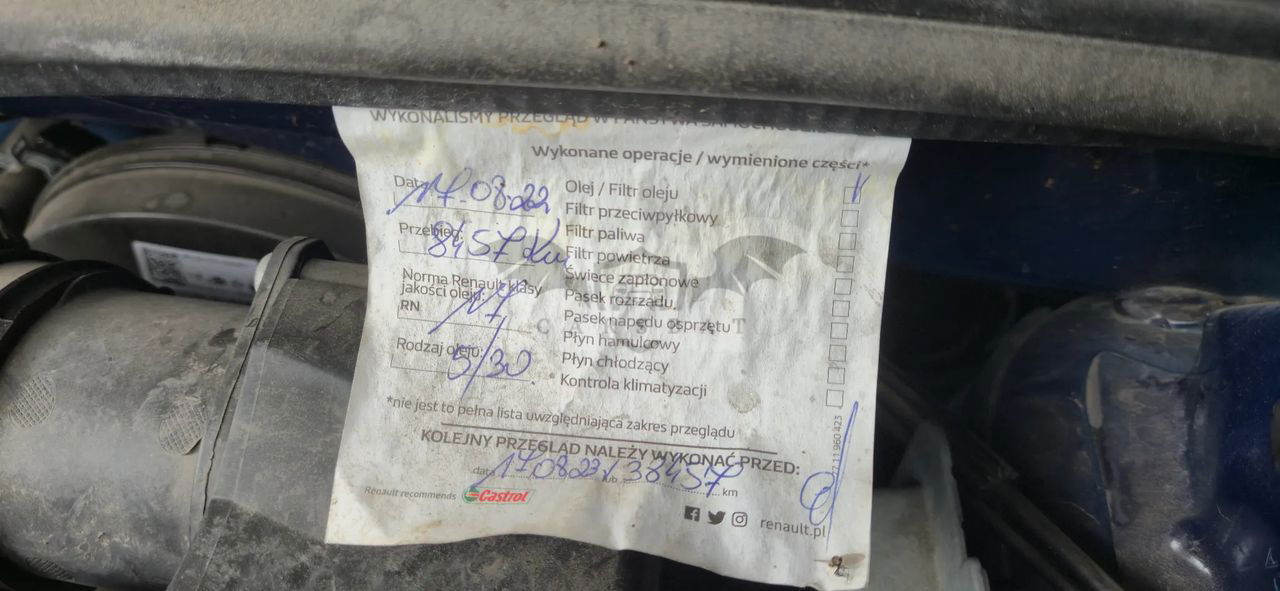 WYKONALIŚMY PRZEGLĄD W PAŃSTWA SAMOCHODZIE
Wykonane operacje / wymienione części*
Data 17.08.22
Przebieg: 8457 Km
Norma Renault klasy
jakości oleju:
RN 17
Rodzaj oleju: 5/30
Olej / Filtr oleju V
Filtr przeciwpyłkowy
Filtr paliwa
Filtr powietrza
Świece zapłonowe
Pasek rozrządu
Pasek napędu osprzętu
Płyn hamulcowy
Płyn chłodzący
Kontrola klimatyzacji
*nie jest to pełna lista uwzględniająca zakres przeglądu
KOLEJNY PRZEGLĄD NALEŻY WYKONAĆ PRZED:
data 17.08.23 lub 38457 km
Renault recommends Castrol
renault.pl
77 11 960 423